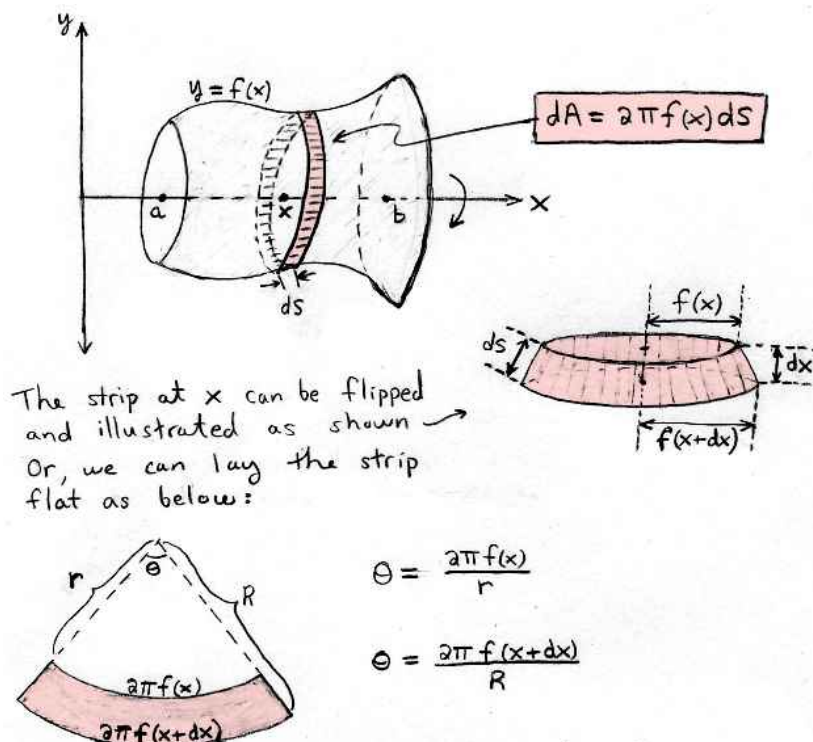 y
y = f(x)
dA = 2πf(x)ds
a
x
b
x
ds
f(x)
ds
dx
f(x+dx)
The strip at x can be flipped
and illustrated as shown
Or, we can lay the strip
flat as below:
θ
r
R
2πf(x)
2πf(x+dx)
θ = 2πf(x) / r
θ = 2πf(x+dx) / R